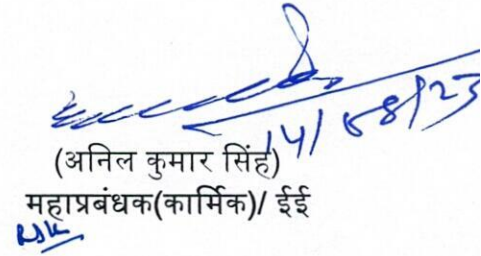 14/08/23
(अनिल कुमार सिंह)
महाप्रबंधक(कार्मिक)/ ईई